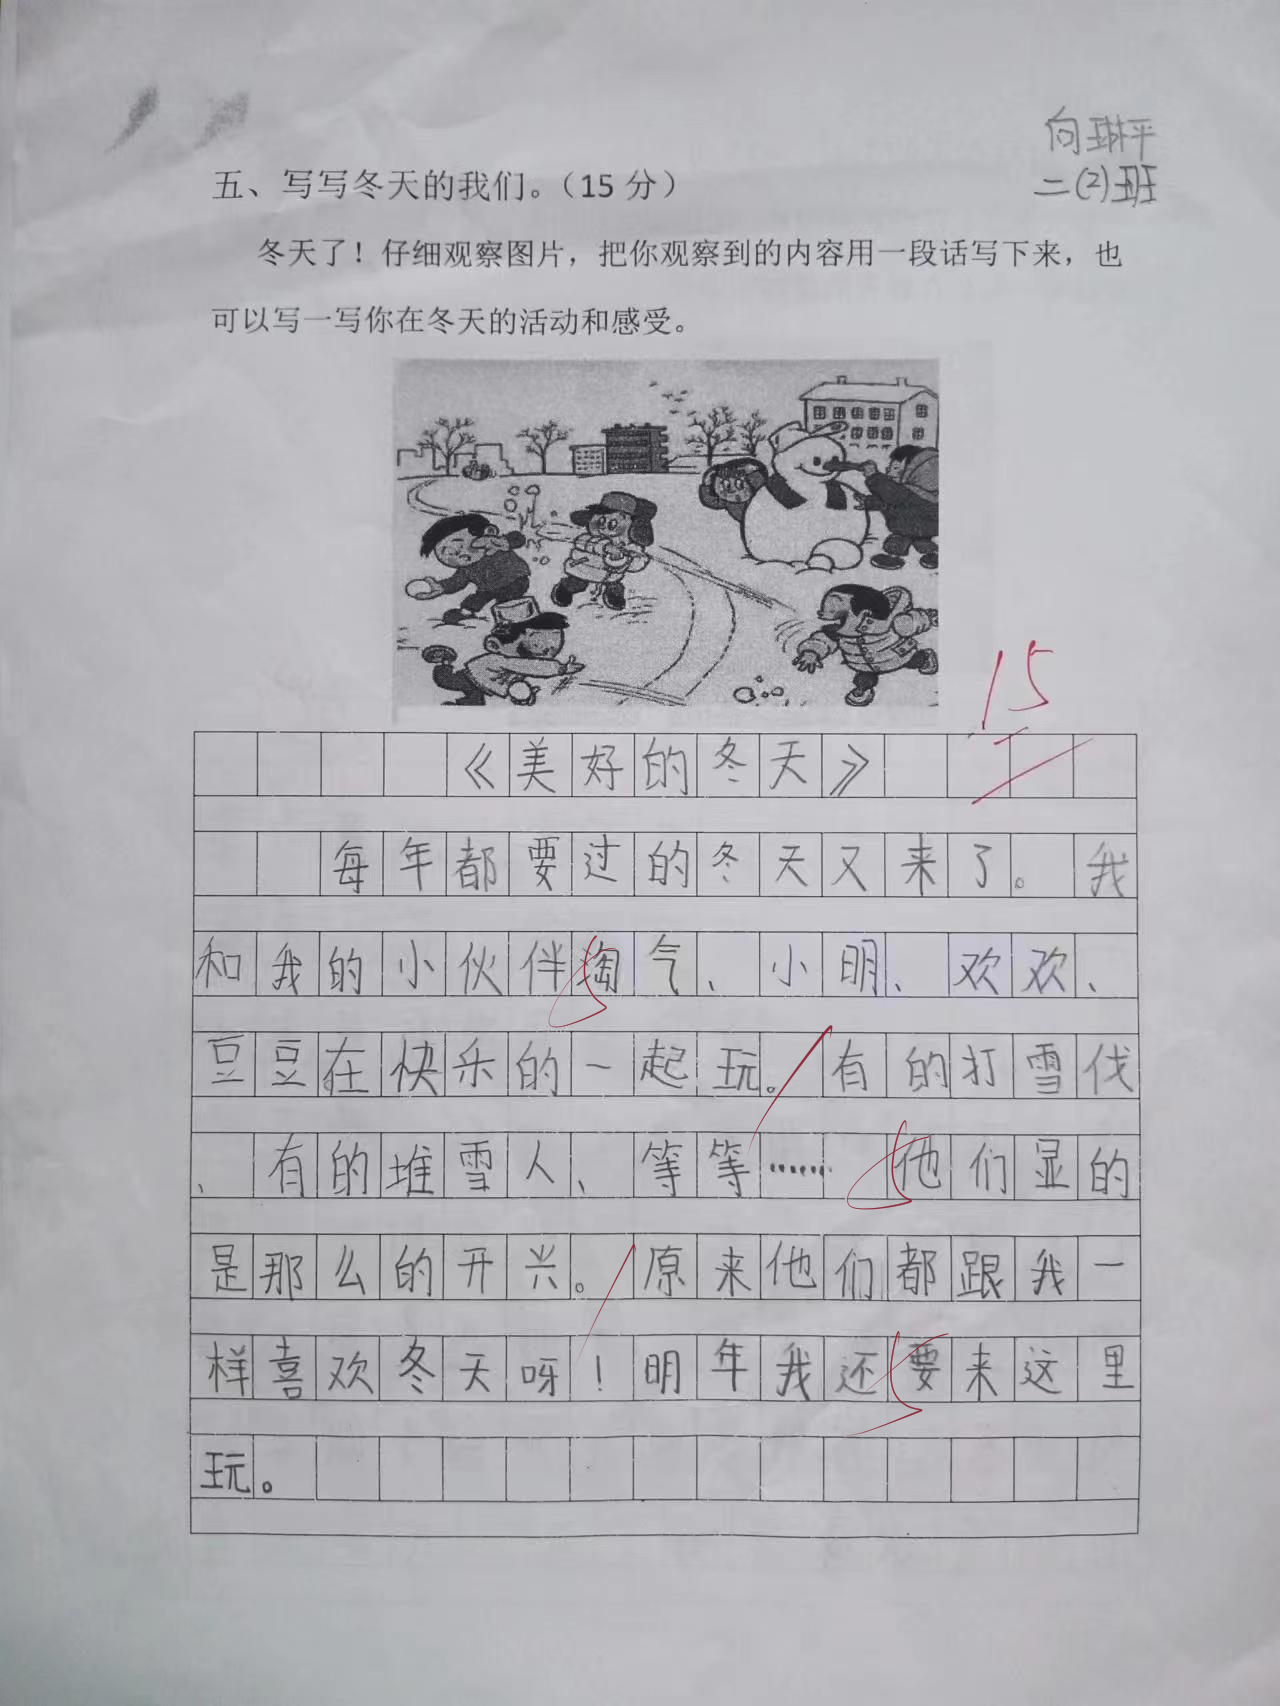 向琳枰
二(2)班
五、写写冬天的我们。（15 分）
冬天了！仔细观察图片，把你观察到的内容用一段话写下来，也
可以写一写你在冬天的活动和感受。
15
《美好的冬天》
每年都要过的冬天又来了。我
和我的小伙伴淘气、小明、欢欢、
豆豆在快乐的一起玩。有的打雪伐
、有的堆雪人、等等……他们显的
是那么的开兴。原来他们都跟我一
样喜欢冬天呀！明年我还要来这里
玩。